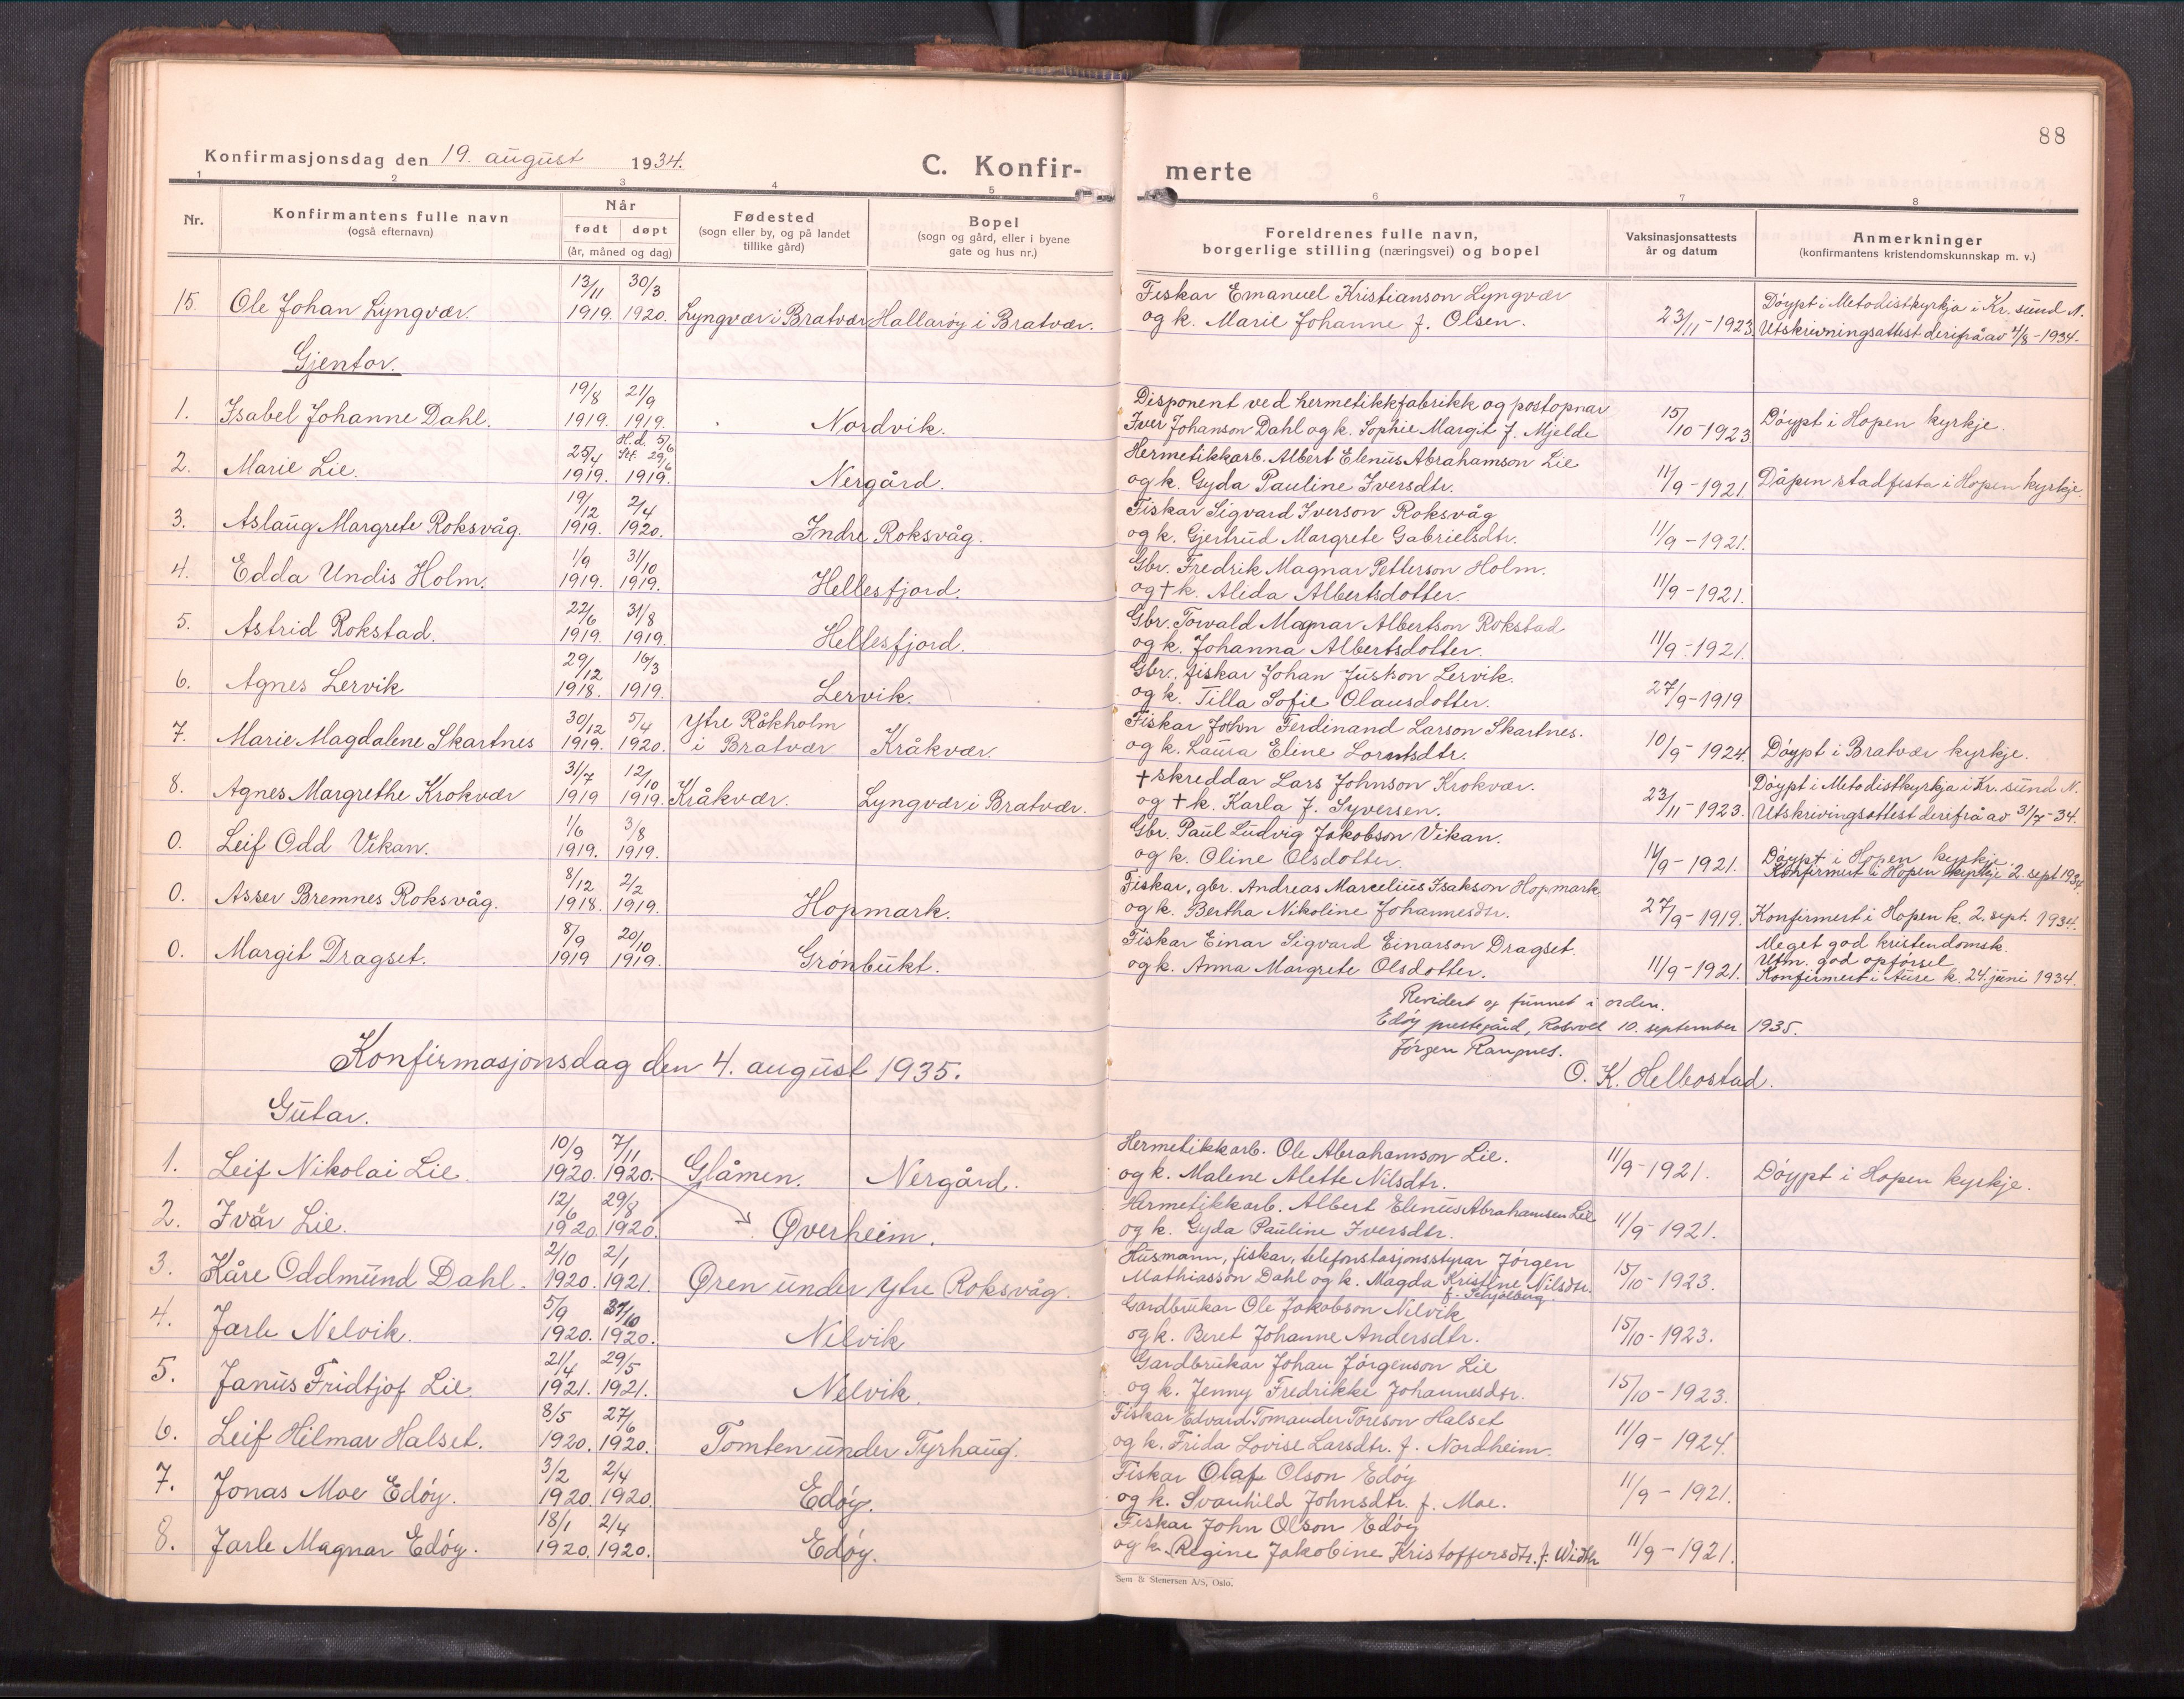 88
Konfirmasjonsdag den 19. august 1934.
C. Konfir-
merte
1 2 3 4 5 6 7 8
Nr.
Konfirmantens fulle navn
(også efternavn)
Når
født døpt
(år, måned og dag)
Fødested
(sogn eller by, og på landet
tillike gård)
Bopel
(sogn og gård, eller i byene
gate og hus nr.)
Foreldrenes fulle navn,
borgerlige stilling (næringsvei) og bopel
Vaksinasjonsattests
år og datum
Anmerkninger
(konfirmantens kristendomskunnskap m. v.)
13/11 30/3 Fiskar Emanuel Kristianson Lyngvær Døypt i Metodistkyrkja i Kr. sund N.
15. Ole Johan Lyngvær. 1919. 1920. Lyngvær i Bratvær Hallarøy i Bratvær. og k. Marie Johanne f. Olsen. 23/11-1923 Utskrivningsattest derifrå av 4/8-1934.
Gjentor.
19/8 21/9 Disponent ved hermetikkfabrikk og postopnar
1. Isabel Johanne Dahl. 1919. 1919. Nordvik. Iver Johanson Dahl og k. Sophie Margit f. Mjelde 15/10-1923 Døypt i Hopen kyrkje.
25/4 H.d. 5/6 Stf. 29/6 Hermetikkarb. Albert Elenus Abrahamson Lie
2. Marie Lie. 1919. 1919. Nergård. og k. Gyda Pauline Iversdtr. 11/9-1921. Dåpen stadfesta i Hopen kyrkje.
19/12 2/4 Fiskar Sigvard Iverson Roksvåg
3. Aslaug Margrete Roksvåg. 1919. 1920. Indre Roksvåg. og k. Gjertrud Margrete Gabrielsdtr. 11/9-1921.
1/9 31/10 Gbr. Fredrik Magnar Petterson Holm.
4. Edda Undis Holm. 1919. 1919. Hellesfjord. og † k. Alida Albertsdotter. 11/9-1921.
22/6 31/8 Gbr. Torvald Magnar Albertson Rokstad
5. Astrid Rokstad. 1919. 1919. Hellesfjord. og k. Johanna Albertsdotter. 11/9-1921.
29/12 16/3 Gbr., fiskar Johan Justson Lervik.
6. Agnes Lervik 1918. 1919. Lervik. og k. Tilla Sofie Olausdotter. 27/9-1919
30/12 5/4 Ytre Råkholm Fiskar John Ferdinand Larson Skartnes.
7. Marie Magdalene Skartnes 1919. 1920. i Bratvær Kråkvær. og k. Laura Eline Lorntsdtr. 10/9-1924. Døypt i Bratvær kyrkje.
31/7 12/10 † skreddar Lars Johnson Krokvær. Døypt i Metodistkyrkja i Kr. sund N.
8. Agnes Margrethe Krokvær 1919 1919. Kråkvær. Lyngvær i Bratvær. og † k. Karla f. Syversen. 23/11-1923. Utskrivingsattest derifrå av 31/7-34.
1/6 3/8 Gbr. Paul Ludvig Jakobson Vikan.
0. Leif Odd Vikan. 1919. 1919. og k. Oline Olsdotter. 11/9-1921. Døypt i Hopen kyrkje.
Konfirmert i Hopen kyrkje 2. sept 1934.
8/12 2/2 Fiskar, gbr. Andreas Marcelius Isakson Hopmark
0. Asser Bremnes Roksvåg. 1918. 1919. Hopmark. og k. Bertha Nikoline Johannesdtr. 27/9-1919. Konfirmert i Hopen k. 2. sept. 1934.
8/9 20/10 Fiskar Einar Sigvard Einarson Dragset. Meget god kristendomsk.
Utm. god opførsel
0. Margit Dragset. 1919 1919. Grønbukt. og k. Anna Margrete Olsdotter. 11/9-1921. Konfirmert i Aure k. 24. juni 1934.
Revidert og funnet i orden.
Edøy prestegård, Rosvoll 10. september 1935.
Jørgen Rangnes.
O. K. Helbostad.
Konfirmasjonsdag den 4. august 1935.
Gutar.
10/9 7/11 Hermetikkarb. Ole Abrahamson Lie.
1. Leif Nikolai Lie. 1920. 1920. Glåmen. Nergård. og k. Malene Alette Nilsdtr. 11/9-1921. Døypt i Hopen kyrkje.
12/6 29/8 Hermetikkarb. Albert Elenus Abrahamsen Lie
2. Ivar Lie. 1920. 1920. Øverheim. og k. Gyda Pauline Iversdtr. 11/9-1921.
2/10 2/1 Husmann, fiskar, telefonstasjonsstyrar Jørgen
3. Kåre Oddmund Dahl. 1920. 1921. Øren under Ytre Roksvåg. Mathiasson Dahl og k. Magda Kristine Nilsdtr. 15/10-1923.
5/9 Gardbrukar Ole Jakobson Nelvik
4. Jarle Nelvik. 1920. 1920. Nelvik og k. Beret Johanne Andersdtr. 15/10-1923.
21/4 29/5 Gardbrukar Johan Jørgenson Lie
5. Janus Fridtjof Lie 1921. 1921. Nelvik. og k. Jenny Fredrikke Johannesdtr. 15/10-1923.
8/5 27/6 Fiskar Edvard Tomander Toreson Halset
6. Leif Hilmar Halset. 1920. 1920. Tomten under Tyrhaug. og k. Frida Lovise Larsdtr. f. Nordheim. 11/9-1924.
3/2 2/4 Fiskar Olaf Olson Edøy
7. Jonas Moe Edøy. 1920. 1920. Edøy. og k. Svanhild Johnsdtr. f. Moe. 11/9-1921.
18/1 2/4 Fiskar John Olson Edøy
8. Jarle Magnar Edøy. 1920. 1920. Edøy. og k. Regine Jakobine Kristoffersdtr. f. 11/9-1921.
Sem & Stenersen A/S, Oslo.